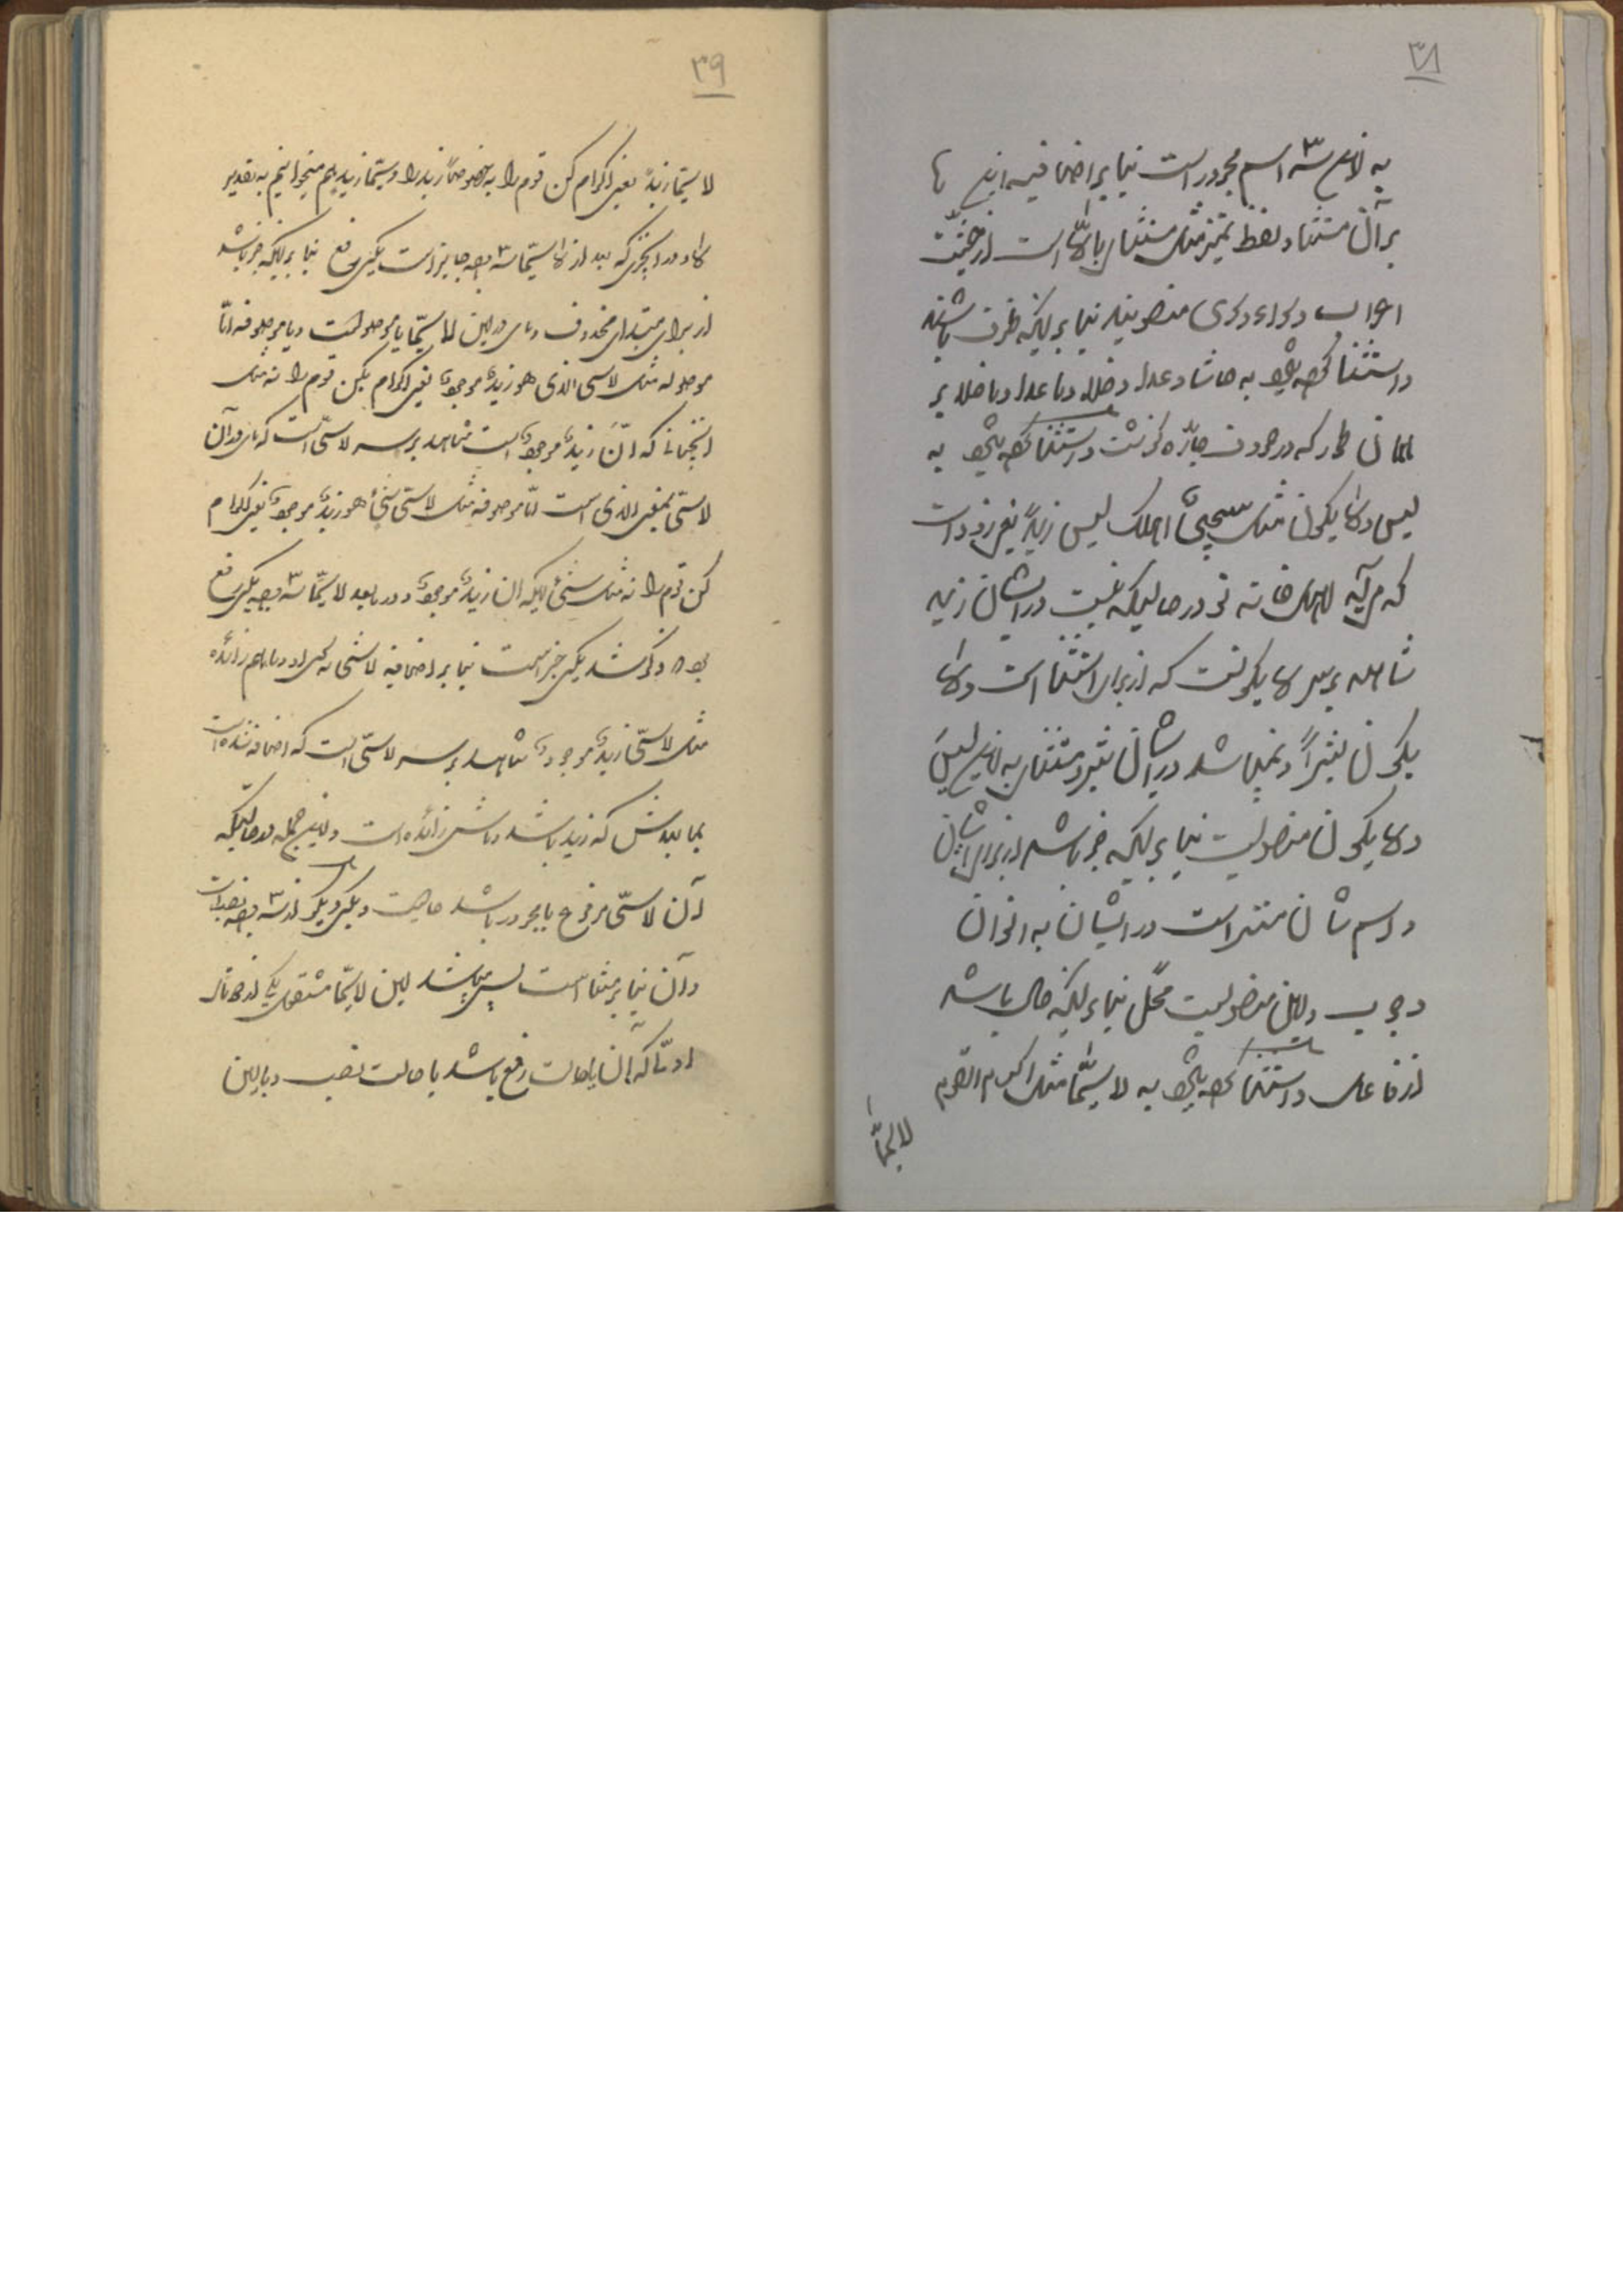 ۳۸
به این سه اسم مجرور است بنا بر اضافیه این ها
بر آن مستثنا و لفظ غیر مثل مستثنای بالّا است از حیثیت
اعراب و سواء و سوی منصوبند بنا بر اینکه ظرف باشند
و استثنا کرده میشود به حاشا و عدا و خلا و ما عدا و ما خلا بر
همان طور که در حروف جارّه گذشت و استثنا کرده میشود به
لیس و لا یکون مثل سیجیئ اهلک لیس زیداً یعنی زود است
که می آید اهل خانه تو در حالیکه نیست در ایشان زید
شاهد بر سر لا یکونست که از برای استثنا است و لا
یکون بشراً و نمیباشد در ایشان بشر و مستثنای به این لیسَ
و لا یکون منصوبست بنا بر اینکه خبر باشد از برای ایشان
و اسم شان مستتر است در ایشان به عنوان
وجوب و این منصوبست محلّ بنا بر اینکه حال باشد
از فاعل و استثنا کرده میشود به لا سیّما مثل اکرم القوم
لا سیّما
۳۹
لا سیّما زیدً یعنی اکرام کن قوم را به خصوصاً زید را و سیّما زید هم میخوانیم به تقدیر
لا و در اسمی که بعد از لا سیّما سه وجه جایز است یکی رفع بنا بر اینکه خبر باشد
از برای مبتدای محذوف و ما در این لا سیّما یا موصولست و یا موصوفه امّا
موصوله مثل لا سی الذی هو زیدٌ موجودٌ یعنی اکرام بکن قوم را نه مثل
آنچنانی که آن زیدٌ موجودٌ است شاهد بر سر لا سیّ است که ما در آن
لا سیّ بمعنی الذی است امّا موصوفه مثل لا سیّ شیئ هو زیدٌ موجودٌ یعنی اکرام
کن قوم را نه مثل شیئی اینکه آن زیدٌ موجودٌ و در ما بعد لا سیّما سه وجه یکی رفع
بود ذکر شد یکی جرّ است بنا بر اضافیه لا سیّ به سوی او و ما هم زائده
مثل لا سیّ زیدٍ موجودٌ شاهد بر سر لا سیّ است که اضافه شده است
بما بعدش که زید باشد و ماش زائده است و این جمله در حالتیکه
آن لا سیّ مرفوع یا مجرور باشد حالیست و یکی دیگر از سه وجه نصب است
و آن بنا بر مستثنا است پس میباشد این لا سیّما مستعمل یکی از دو تا
اوّلاً که آن یا حالت رفع باشد یا حالت نصب و یا این